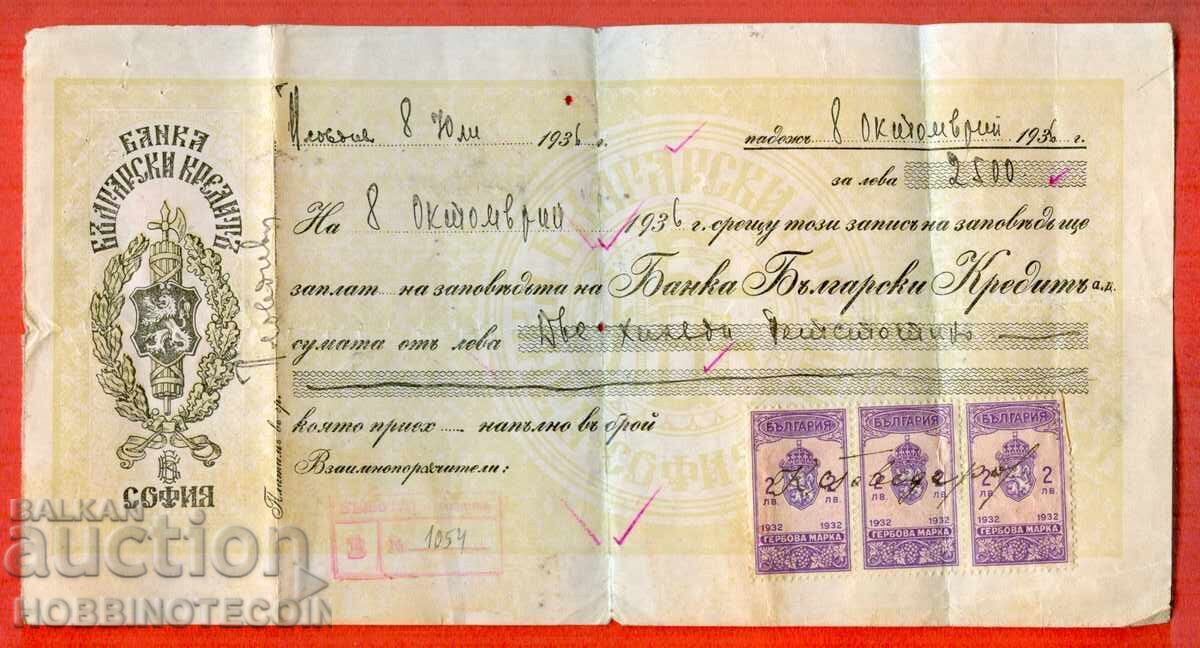 БАНКА
БЪЛГАРСКИ КРЕДИТЪ
СОФИЯ
Платимъ въ гр. Пловдивъ
Пловдив 8 Юли 1936 г.
падежъ 8 Октомврий 1936 г.
за лева 2500
На 8 Октомврий 1936 г. срещу този записъ на заповѣдь ще
заплат на заповѣдьта на Банка Български Кредитъ а.д.
сумата отъ лева Две хиляди
която приех напълно въ брой
Взаимнопоръчители:
В № 1054
БЪЛГАРИЯ БЪЛГАРИЯ БЪЛГАРИЯ
2 2 2 2 2 2
ЛВ. ЛВ. ЛВ. ЛВ. ЛВ. ЛВ.
1932 1932 1932 1932 1932 1932
ГЕРБОВА МАРКА ГЕРБОВА МАРКА ГЕРБОВА МАРКА
БЪЛГАРСКИ
СОФИЯ
BALKAN
auction
HOBBINOTECOIN